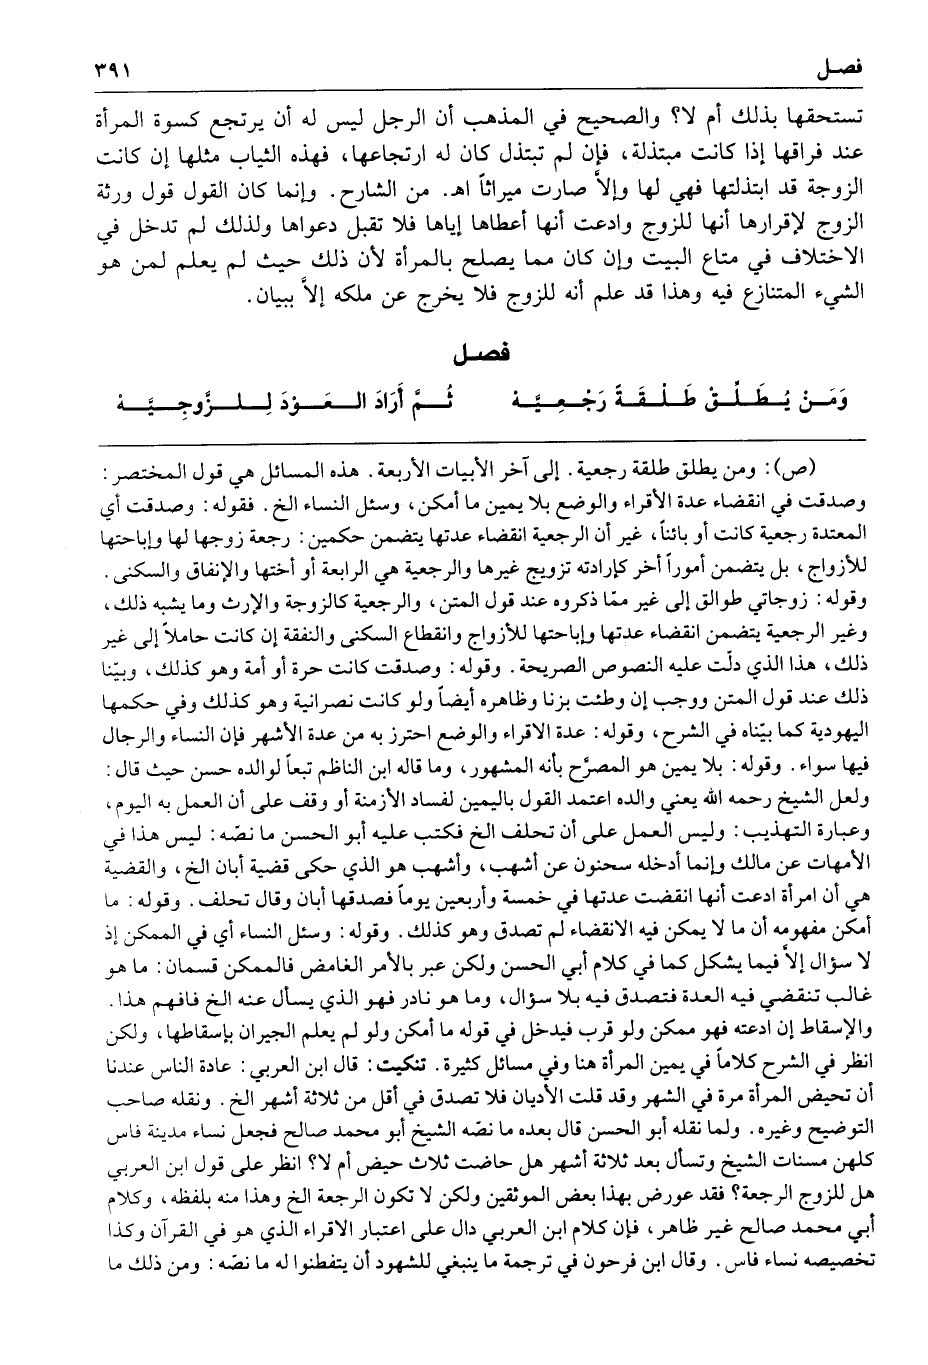 فصل
٣٩١
تستحقها بذلك أم لا؟ والصحيح في المذهب أن الرجل ليس له أن يرتجع كسوة المرأة
عند فراقها إذا كانت مبتذلة، فإن لم تبتذل كان له ارتجاعها، فهذه الثياب مثلها إن كانت
الزوجة قد ابتذلتها فهي لها وإلاَّ صارت ميراثاً اهـ. من الشارح. وإنما كان القول قول ورثة
الزوج لإقرارها أنها للزوج وادعت أنها أعطاها إياها فلا تقبل دعواها ولذلك لم تدخل في
الاختلاف في متاع البيت وإن كان مما يصلح بالمرأة لأن ذلك حيث لم يعلم لمن هو
الشيء المتنازع فيه وهذا قد علم أنه للزوج فلا يخرج عن ملكه إلاَّ ببيان.
فصل
وَمَـن يُـطَـلِّـقْ طَـلْـقَـةً رَجْـعِـيَّـة ثُـمَّ أَرَادَ الـعَـوْدَ لِـلـزَّوجِـيَّـة
(ص): ومن يطلق طلقة رجعية. إلى آخر الأبيات الأربعة. هذه المسائل هي قول المختصر:
وصدقت في انقضاء عدة الأقراء والوضع بلا يمين ما أمكن، وسئل النساء الخ. فقوله: وصدقت أي
المعتدة رجعية كانت أو بائناً، غير أن الرجعية انقضاء عدتها يتضمن حكمين: رجعة زوجها لها وإباحتها
للأزواج، بل يتضمن أموراً أخر كإرادته تزويج غيرها والرجعية هي الرابعة أو أختها والإنفاق والسكنى.
وقوله: زوجاتي طوالق إلى غير ممّا ذكروه عند قول المتن، والرجعية كالزوجة والإرث وما يشبه ذلك،
وغير الرجعية يتضمن انقضاء عدتها وإباحتها للأزواج وانقطاع السكنى والنفقة إن كانت حاملاً إلى غير
ذلك، هذا الذي دلّت عليه النصوص الصريحة. وقوله: وصدقت كانت حرة أو أمة وهو كذلك، وبيّنا
ذلك عند قول المتن ووجب إن وطئت بزنا وظاهره أيضاً ولو كانت نصرانية وهو كذلك وفي حكمها
اليهودية كما بيّناه في الشرح، وقوله: عدة الاقراء والوضع احترز به من عدة الأشهر فإن النساء والرجال
فيها سواء. وقوله: بلا يمين هو المصرَّح بأنه المشهور، وما قاله ابن الناظم تبعاً لوالده حسن حيث قال:
ولعل الشيخ رحمه الله يعني والده اعتمد القول باليمين لفساد الأزمنة أو وقف على أن العمل به اليوم،
وعبارة التهذيب: وليس العمل على أن تحلف الخ فكتب عليه أبو الحسن ما نصّه: ليس هذا في
الأمهات عن مالك وإنما أدخله سحنون عن أشهب، وأشهب هو الذي حكى قضية أبان الخ، والقضية
هي أن امرأة ادعت أنها انقضت عدتها في خمسة وأربعين يوماً فصدقها أبان وقال تحلف. وقوله: ما
أمكن مفهومه أن ما لا يمكن فيه الانقضاء لم تصدق وهو كذلك. وقوله: وسئل النساء أي في الممكن إذ
لا سؤال إلاَّ فيما يشكل كما في كلام أبي الحسن ولكن عبر بالأمر الغامض فالممكن قسمان: ما هو
غالب تنقضي فيه العدة فتصدق فيه بلا سؤال، وما هو نادر فهو الذي يسأل عنه الخ فافهم هذا.
والإسقاط إن ادعته فهو ممكن ولو قرب فيدخل في قوله ما أمكن ولو لم يعلم الجيران بإسقاطها، ولكن
انظر في الشرح كلاماً في يمين المرأة هنا وفي مسائل كثيرة. تنكيت: قال ابن العربي: عادة الناس عندنا
أن تحيض المرأة مرة في الشهر وقد قلت الأديان فلا تصدق في أقل من ثلاثة أشهر الخ. ونقله صاحب
التوضيح وغيره. ولما نقله أبو الحسن قال بعده ما نصّه الشيخ أبو محمد صالح فجعل نساء مدينة فاس
كلهن مسنات الشيخ وتسأل بعد ثلاثة أشهر هل حاضت ثلاث حيض أم لا؟ انظر على قول ابن العربي
هل للزوج الرجعة؟ فقد عورض بهذا بعض الموثقين ولكن لا تكون الرجعة الخ وهذا منه بلفظه، وكلام
أبي محمد صالح غير ظاهر، فإن كلام ابن العربي دال على اعتبار الاقراء الذي هو في القرآن وكذا
تخصيصه نساء فاس. وقال ابن فرحون في ترجمة ما ينبغي للشهود أن يتفطنوا له ما نصّه: ومن ذلك ما